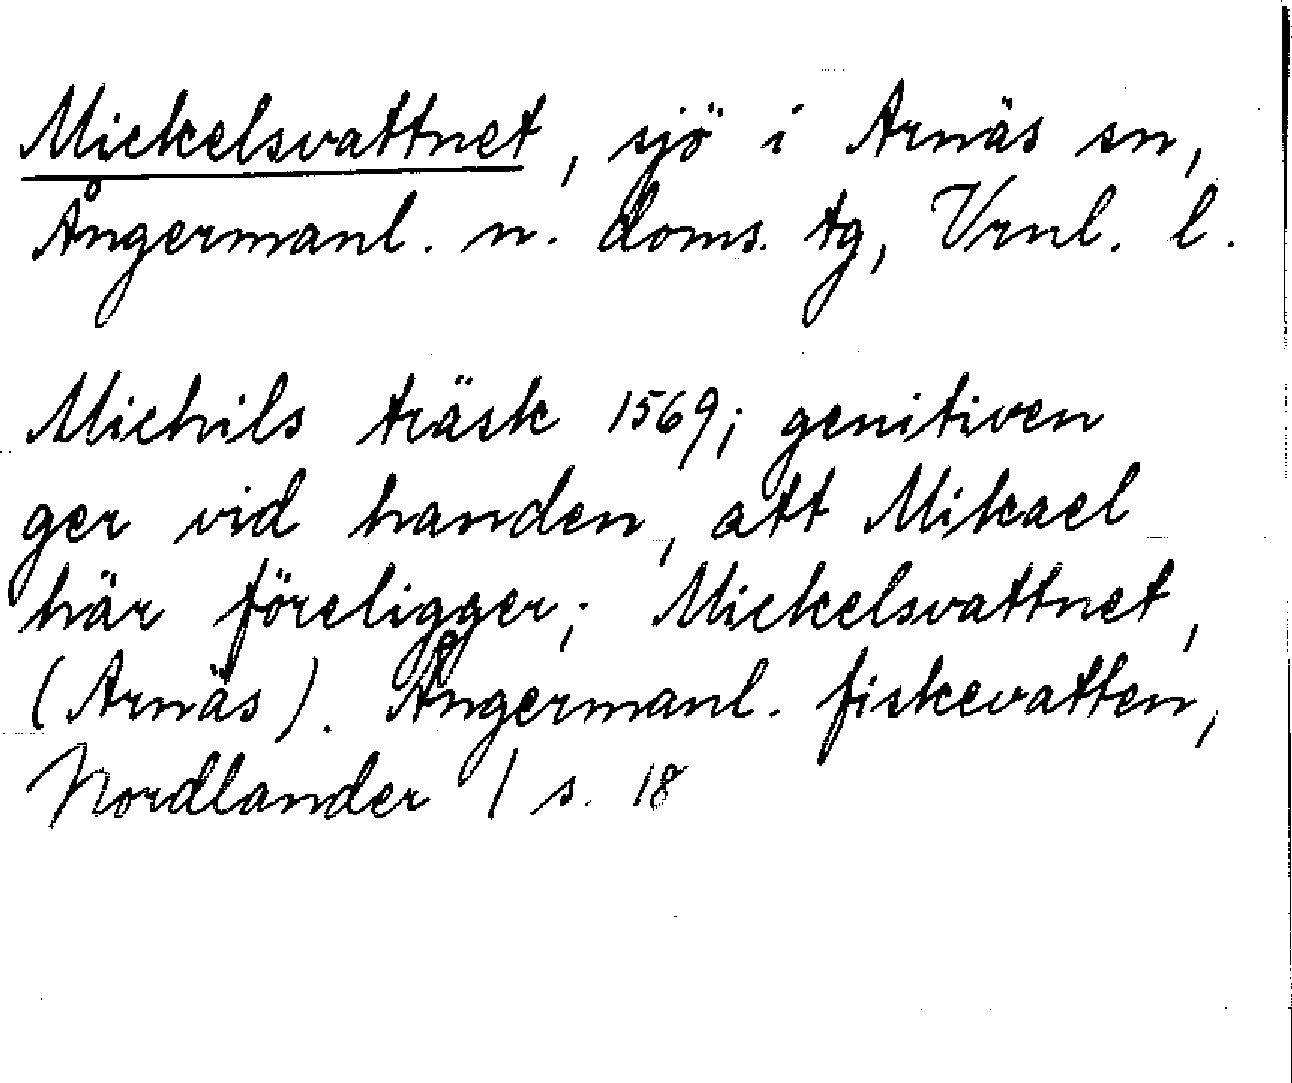 Mickelsvattnet, sjö i Arnäs sn,
Ångermanl. n. doms. tg, Vrnl. l.
Michils träsk 1569; genitiven
ger vid handen, att Mikael
här föreligger; Mickelsvattnet,
(Arnäs). Ångermanl. fiskevatten,
Nordlander / s. 18